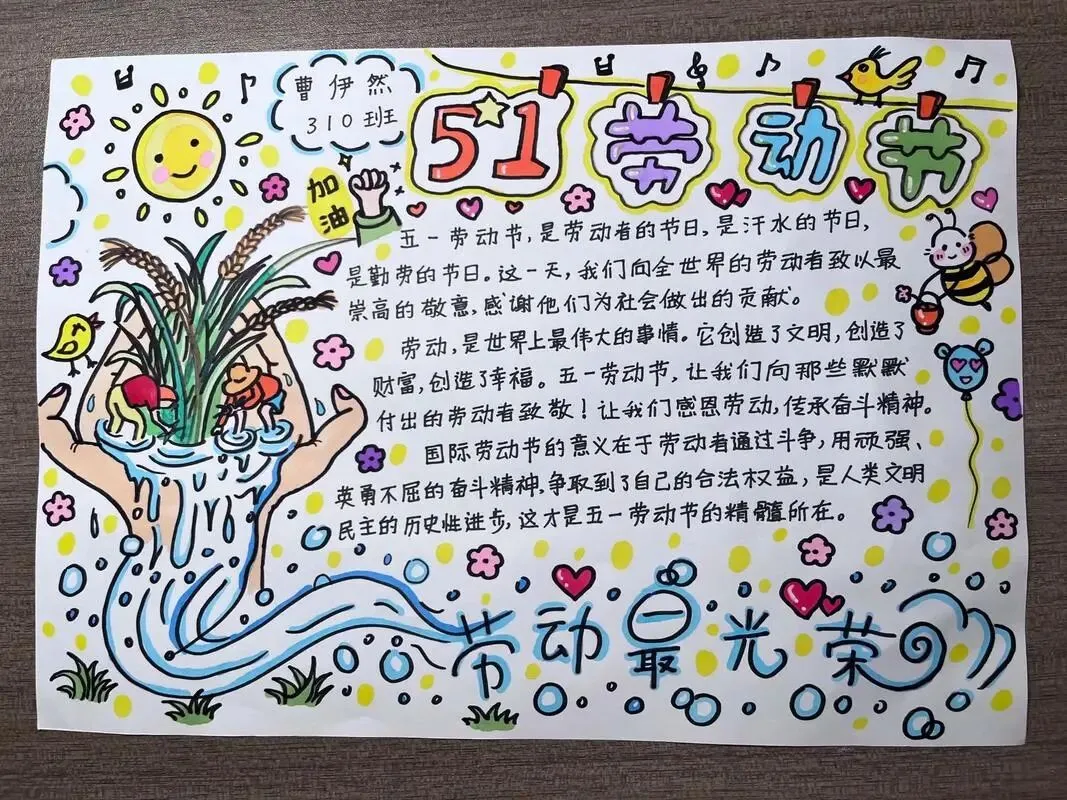 曹伊然
310班
51劳动节
加油
五一劳动节，是劳动者的节日，是汗水的节日，
是勤劳的节日。这一天，我们向全世界的劳动者致以最
崇高的敬意，感谢他们为社会做出的贡献。
劳动，是世界上最伟大的事情。它创造了文明，创造了
财富，创造了幸福。五一劳动节，让我们向那些默默
付出的劳动者致敬！让我们感恩劳动，传承奋斗精神。
国际劳动节的意义在于劳动者通过斗争，用顽强、
英勇不屈的奋斗精神，争取到了自己的合法权益，是人类文明
民主的历史性进步，这才是五一劳动节的精髓所在。
劳动最光荣